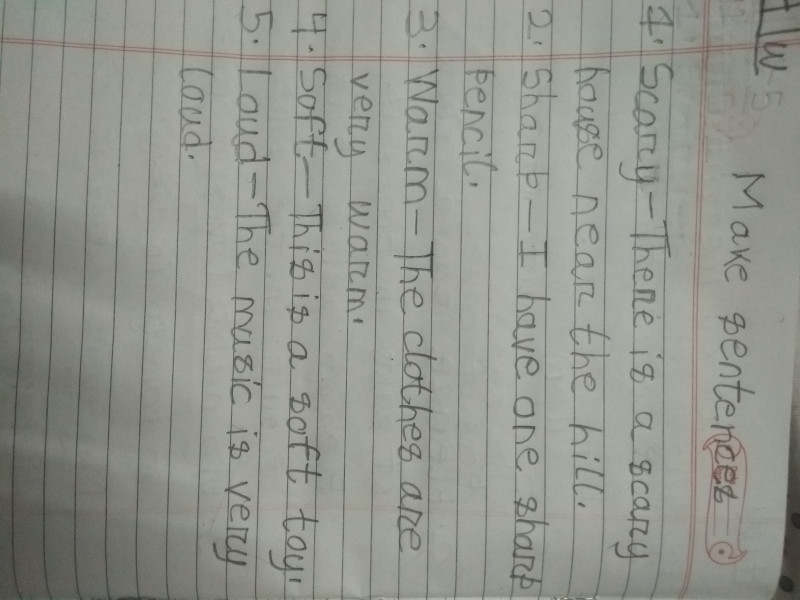 H/W
Make sentences -
1. Scary - There is a scary
house near the hill.
2. Sharp - I have one sharp
pencil.
3. Warm - The clothes are
very warm.
4. Soft - This is a soft toy.
5. Loud - The music is very
loud.